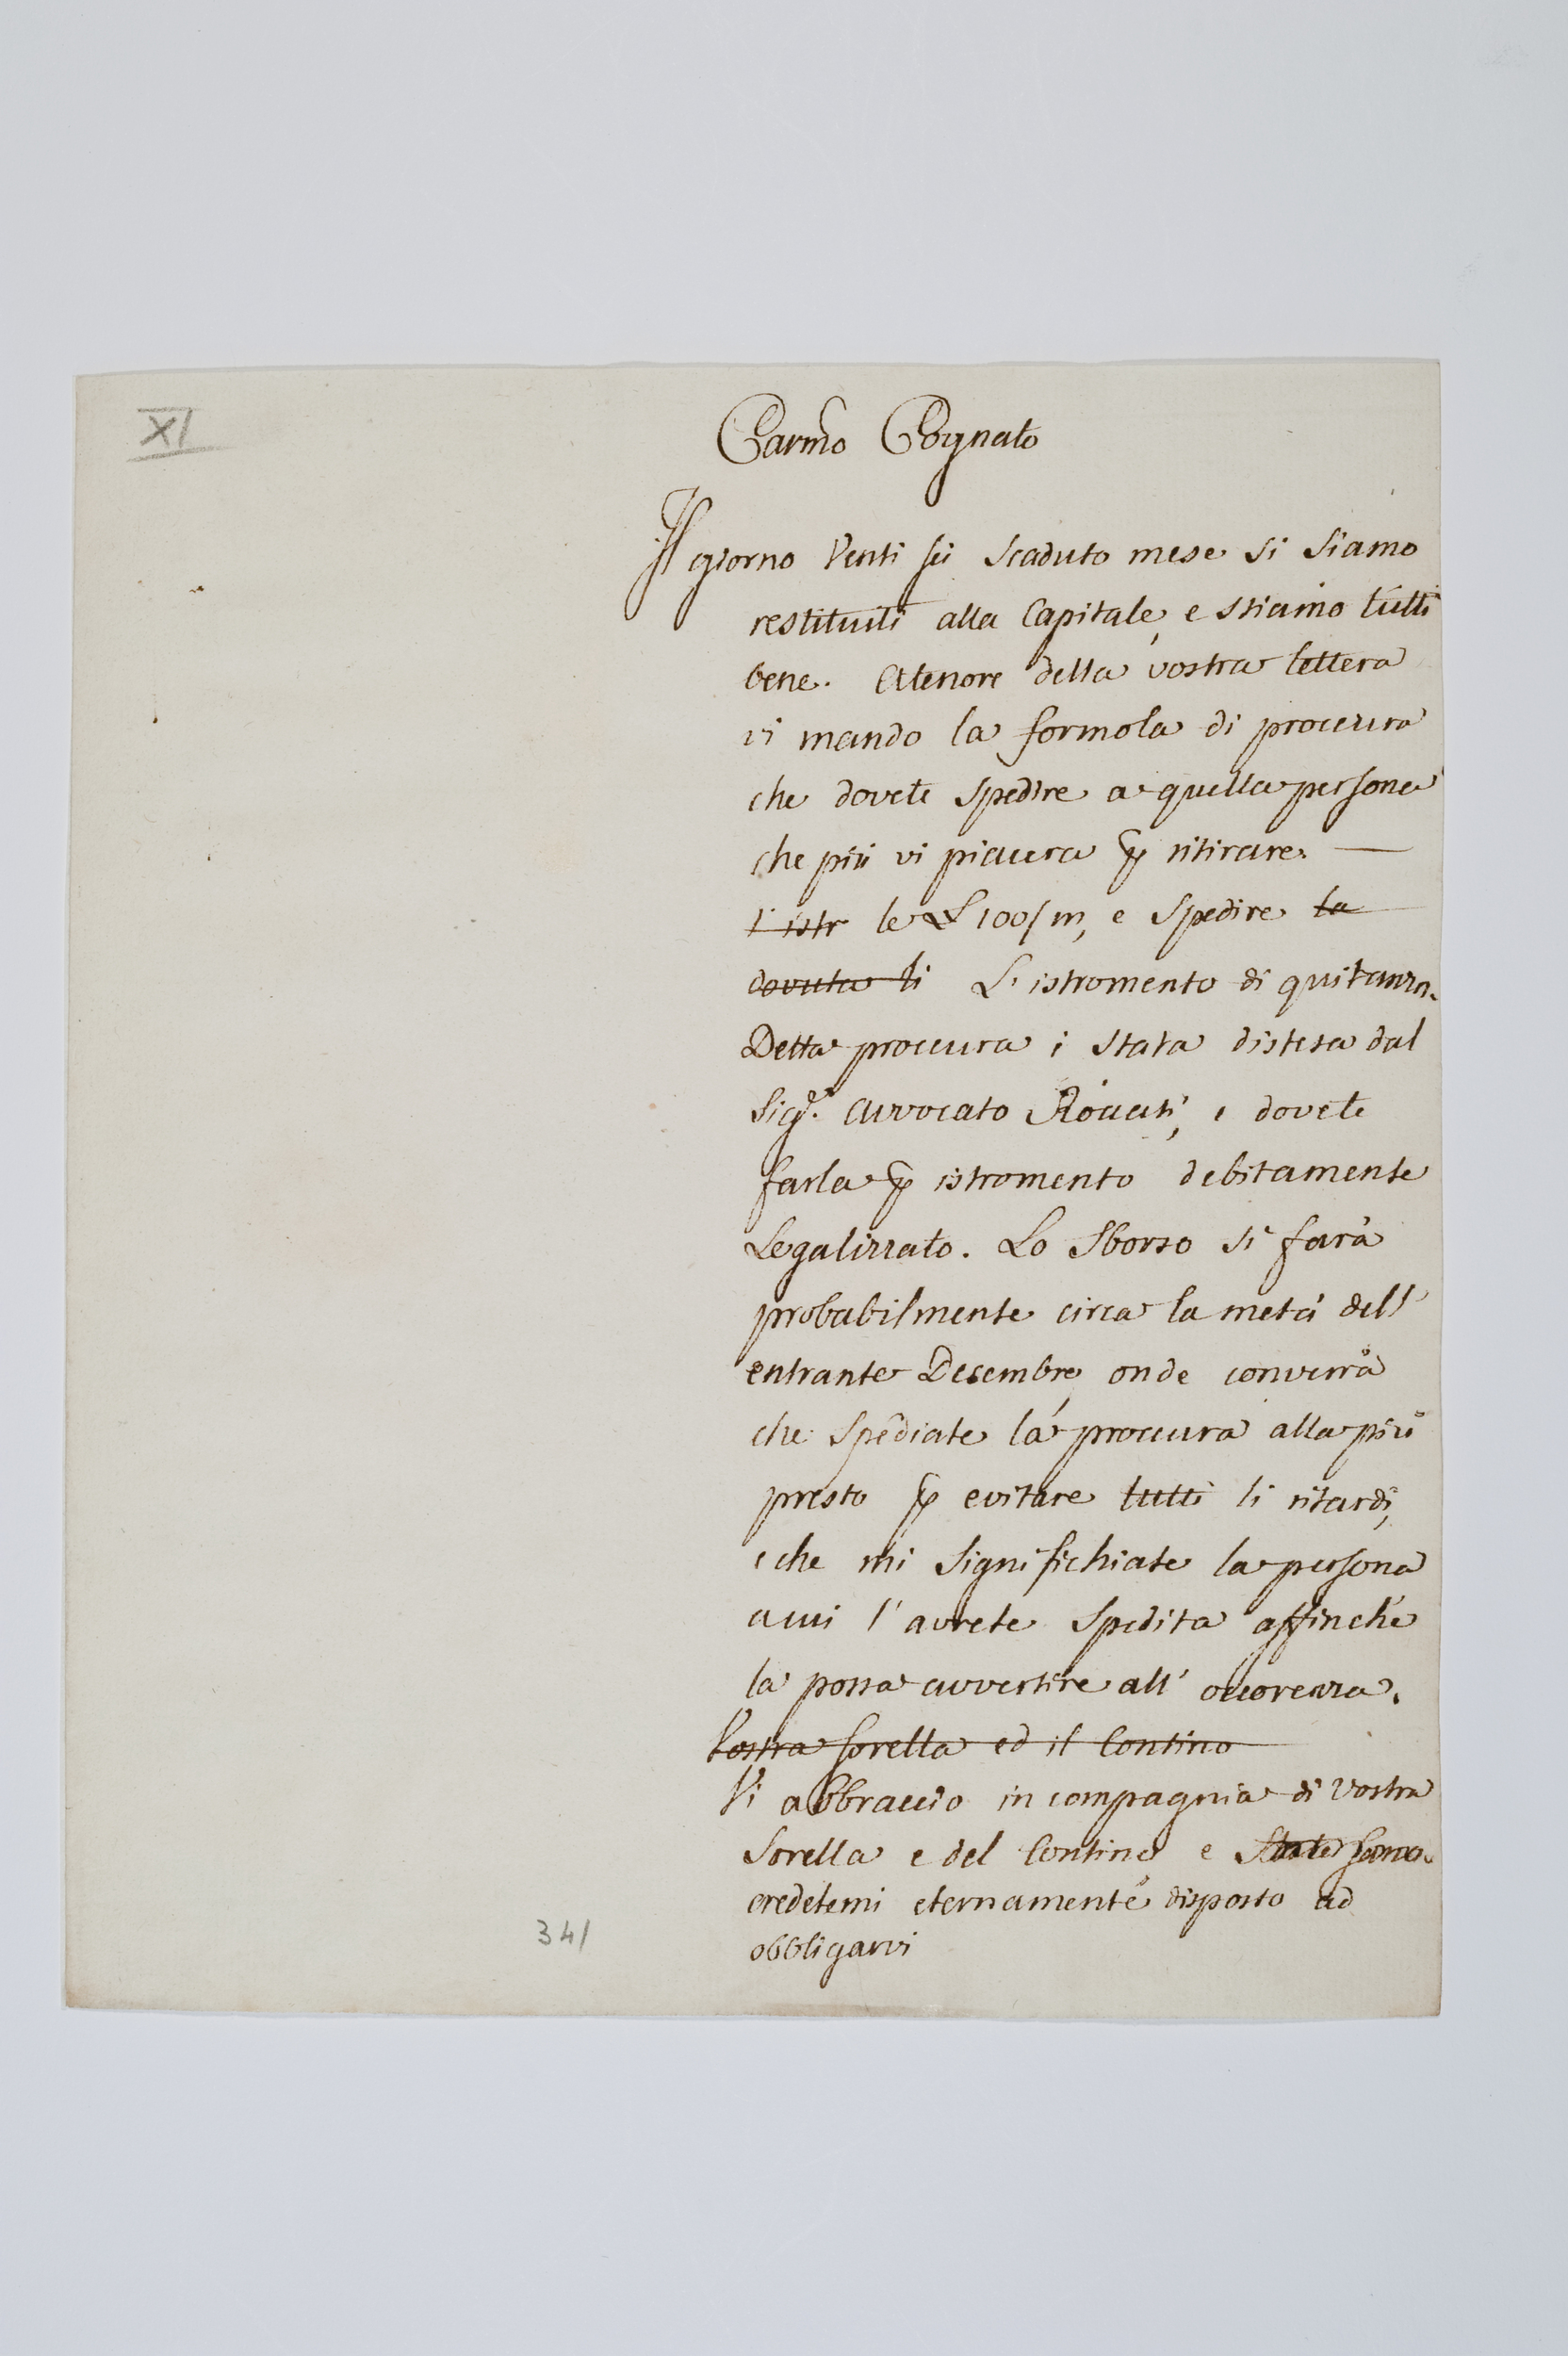 XI
Carmo Cognato
Il giorno Venti sei scaduto mese si siamo
restituiti alla Capitale, e stiamo tutti
bene. Atenore della vostra lettera
vi mando la formola di proccura
che dovete spedire a quella persona
che più vi piacera p ritirare. —
l'istr le L 100/m, e spedire la
dovuta li L'istromento di quitanza.
Detta proccura è stata distesa dal
Sigr. avvocato Rovati, e dovete
farla p istromento debitamente
Legalizzato. Lo Sborso si farà
probabilmente circa la metà dell'
entrante Decembre, onde converrà
che spediate la proccura alla più
presto p evitare tutti li ritardi,
e che mi significhiate la persona
a cui l'avrete spedita affinchè
la possa avvertire all' occorenza.
Vostra sorella ed il Contino
Vi abbraccio in compagnia di vostra
Sorella e del Contino e
credetemi eternamente disposto ad
obbligarvi
341